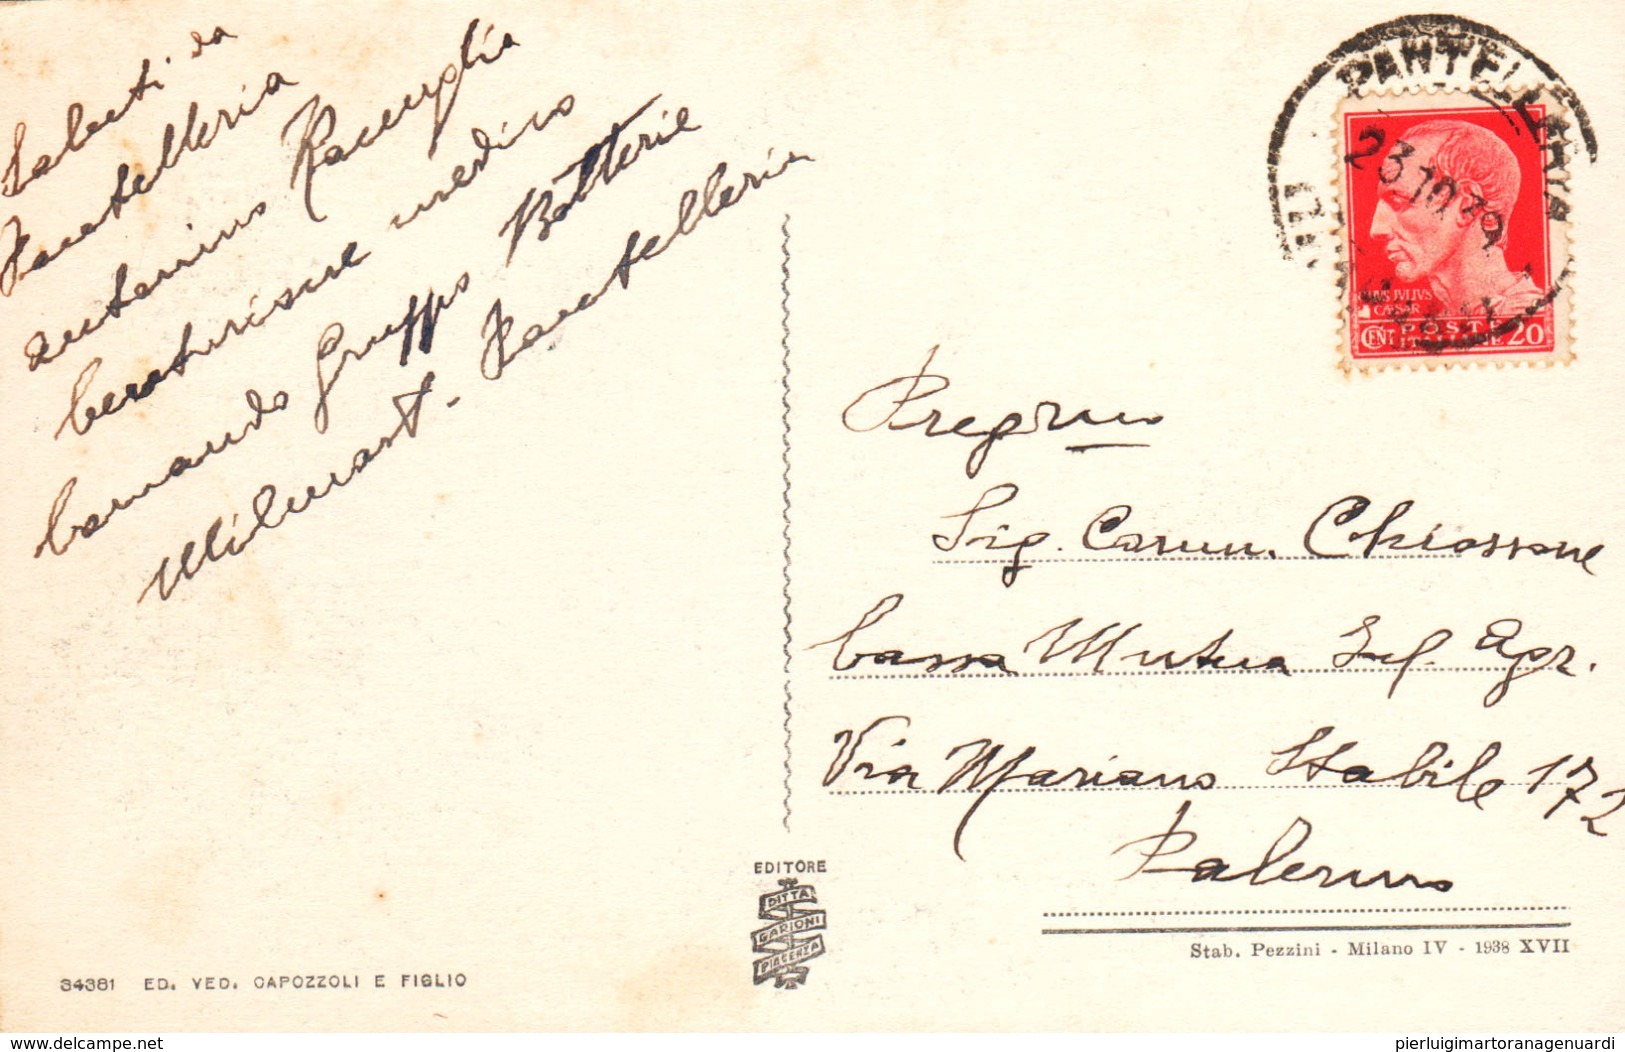 Saluti da
Pantelleria
Antonino
Camurista medico
Comando Gruppo Batterie
Milmart. Pantelleria
PANTELLERIA
23.10.39
JULIVS
CAESAR
CENT POSTE 20
ITALIANE
Preg/mo
Sig. Carm. Chiossone
Cassa Mutua Inf. Agr.
Via Mariano Stabile 172
Palermo
EDITORE
DITTA
GARIONI
PIACENZA
Stab. Pezzini - Milano IV - 1938 XVII
34381 ED. VED. CAPOZZOLI E FIGLIO
delcampe.net
pierluigimartoranagenuardi